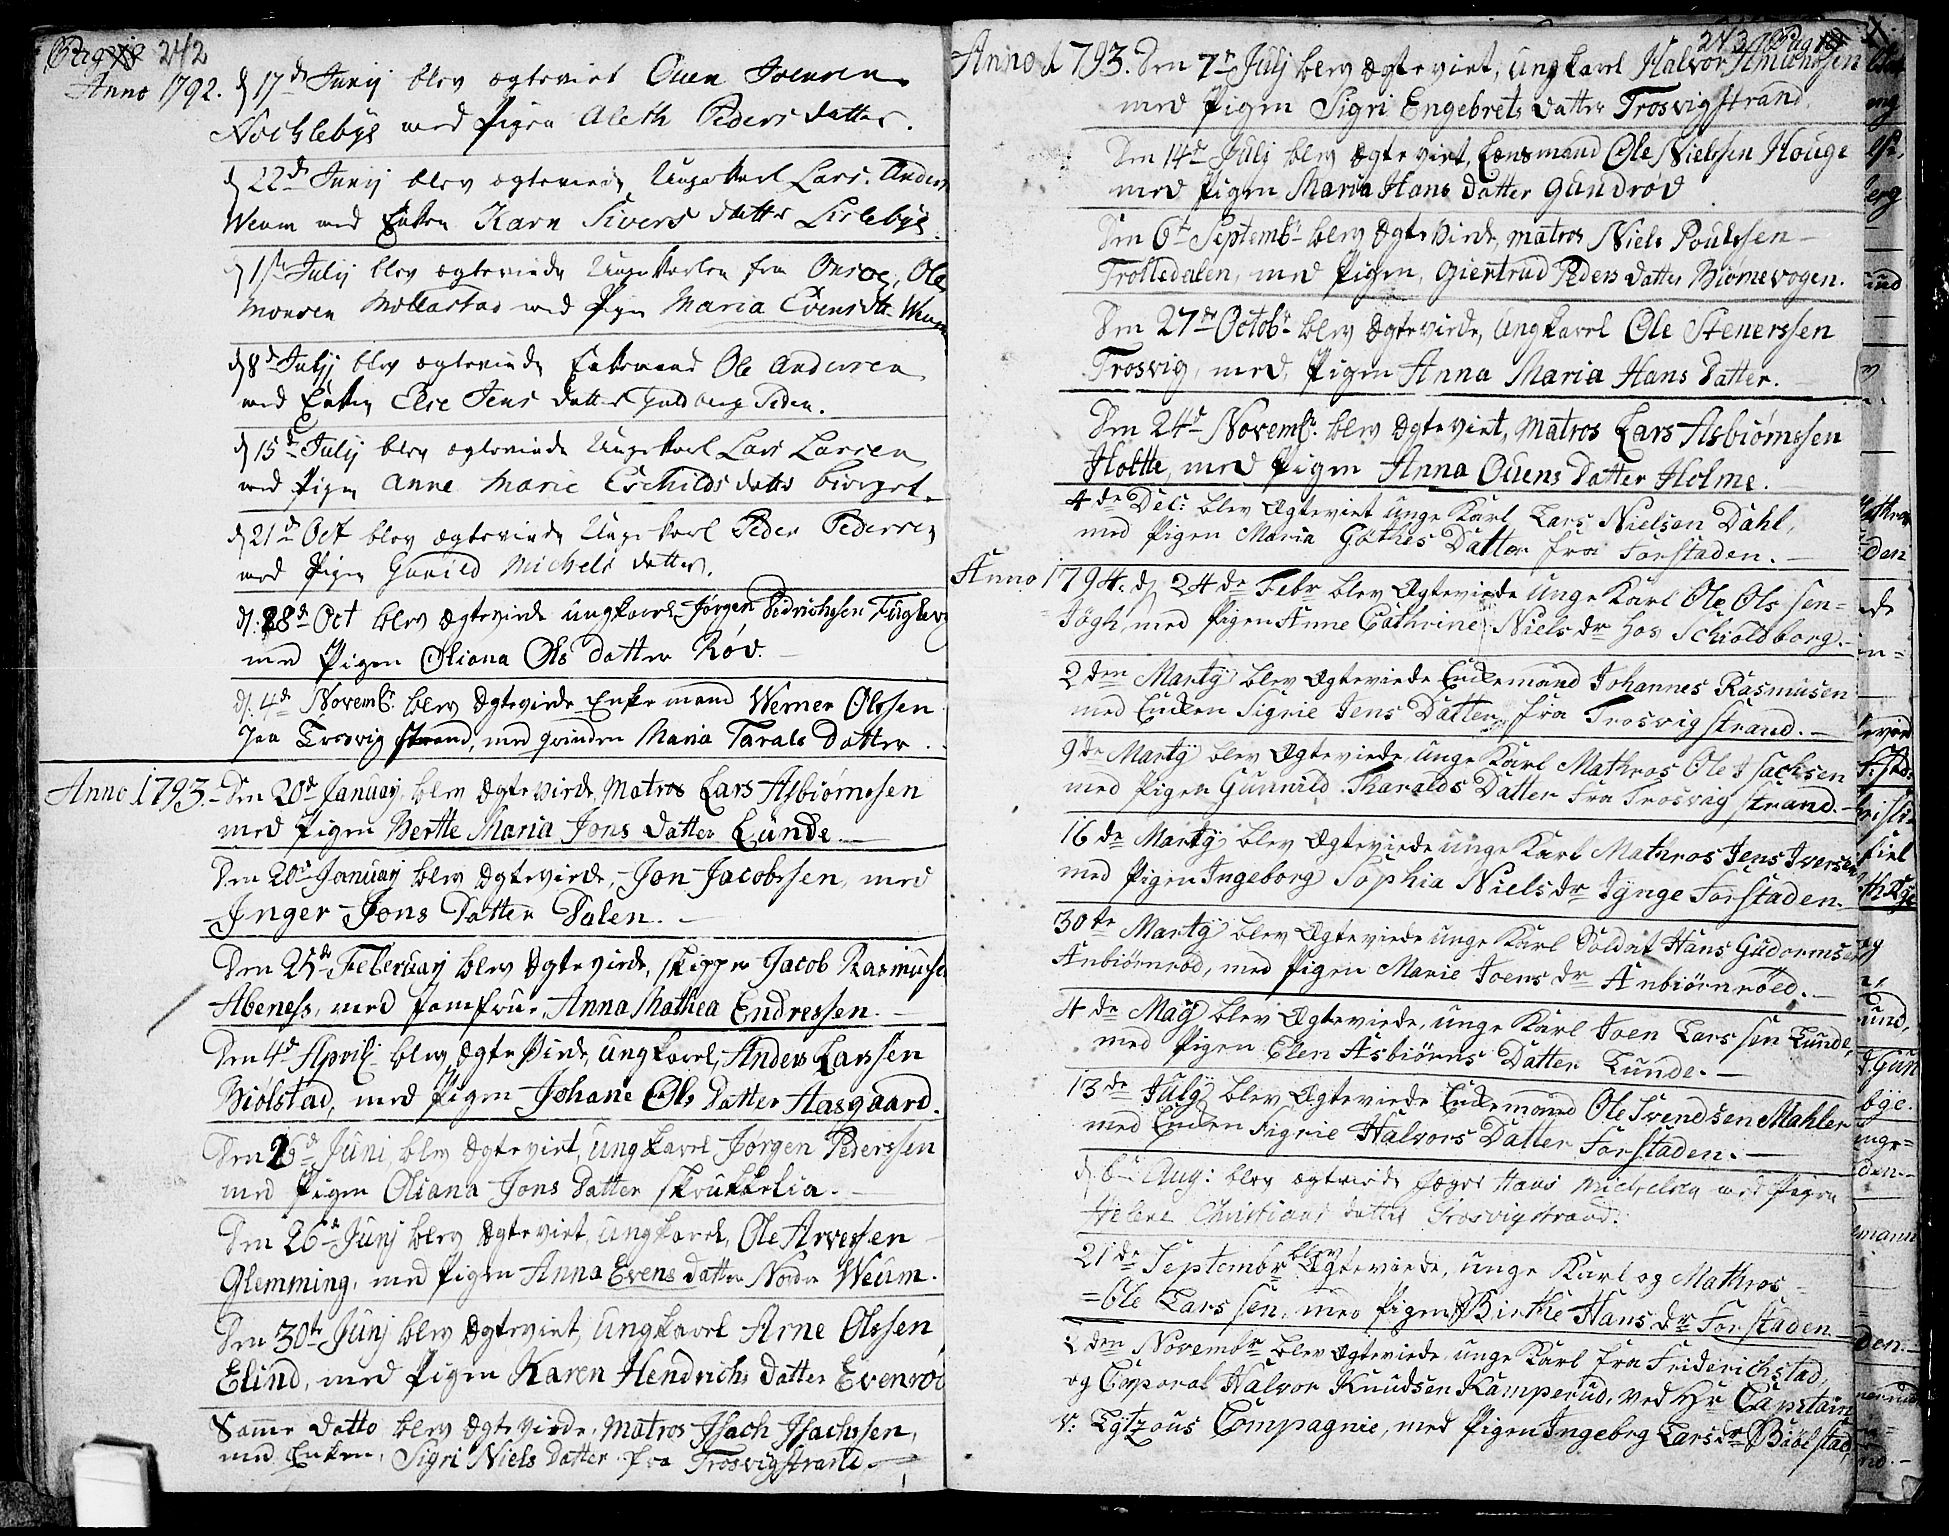 Pag 242
Anno 1792. d 17de Junij blev ægteviet Ouen Joensen
Nochlebye med Pigen Aleth Peders datter.
d 22de Junij blev ægteviede Ungekarl Lars Anders
Weum med Enken Karn Sivers datter Lislebye.
d 1ste Julij blev ægteviede Ungekarlen fra Onsøe, Ole
Monsen Mollastad med Pigen Maria Evens dtr Weum
d 8de Julij blev ægteviede Enkemand Ole Andersen
med Enken Else Jens datter Guldberg Peden.
d 15de Julij blev ægteviede Ungekarl Lars Larsen
med Pigen Anne Marie Eschilds datter
d 21de Oct blev ægteviede Ungekarl Peder Pedersen
med Pigen Gunild Michels datter.
d. 28de Oct blev Ægtevirde ungkarl Jørgen Didrichsen Fuglevig
med Pigen Oliana Ols Datter Røv.
d. 4de Novembr. blev Ægtevirde Enkemand Werner Olssen
paa Trosvig strand, med qvinden Maria Tarals Datter.
Anno 1793. Den 20de Januarij blev Ægtevirde, Matros Lars Asbiørnssen
med Pigen Berthe Maria Jons Datter Lunde.
Den 20de Januarij blev Ægtevirde, Jon Jacobssen, med
Inger Jons Datter Dalen.
Den 25de Februarij blev Ægtevirde, skipper Jacob Rasmusse
Abeness, med Jomfrue, Anna Mathea Endressen.
Den 4de April blev Ægtevirde, Ungkarl, Anders Larssen
Biølstad, med Pigen Johane Ols Datter Aasgaard.
Den 26de Juni blev Ægteviet, Ungkarl Jørgen Pederssen
med Pigen Oliana Jons Datter skrukkelia.
Den 26de Junj blev Ægteviet, Ungkarl, Ole Arvessen
Glemming, med Pigen Anna Evens Datter Nordre Weum.
Den 30te Junj blev Ægteviet, Ungkarl Arne Olssen
Elind, med Pigen Karen Hendrichs Datter Evenrød
Samme Datto blev Ægtevirde, Matros Isach Isachssen,
med Enken, Sigri Niels Datter fra Trosvigstrand.
243 Pag
Anno 1793. Den 7de Julj blev Ægteviet, Ungkarl Halvor Amundssen
med Pigen Sigri Engebrets Datter Trosvigstrand.
Den 14de Julj blev Ægteviet, Lensmand Ole Nielssen Houge
med Pigen Maria Hans Datter Gundrød
Den 6te Septembr. blev Ægtevirde, Matros Niels Poulssen
Trolledalen, med Pigen, Giertrud Peders Datter Biørnevogen.
Den 27de Octobr. blev Ægtevirde, Ungkarl Ole Stenerssen
Trosvig, med, Pigen Anna Maria Hans Datter.
Den 24de Novembr. blev Ægteviet, Matros Lars Asbiørnssen
Holtte, med Pigen Anna Ouens Datter Holme.
4de Dec: blev Ægteviet unge Karl Lars Nielsen Dahl,
med Pigen Maria Gøthes Datter fra Forstaden.
Anno 1794. d 24de Febr blev Ægteviede Unge Karl Ole Olssen=
=Jøgh, med Pigen Anne Cathrine Niels dr hos Schioldborg.
2den Martÿ blev Ægteviede Enckemand Johannes Rasmusen
med Encken Sigrie Jens Datter fra Trosvig strand.
9de Martÿ blev Ægteviede, unge Karl Mathros Ole Isachsen
med Pigen Gunnild Tharalds Datter fra Trosvig strand.
16de Martÿ blev Ægteviede unge Karl Mathros Jens Iversen
med Pigen Ingeborg Sophia Niels dr Lÿnge Forstaden.
30te Martÿ blev Ægteviede unge Karl Soldat Hans Gudormsen
Anbiørnrød, med Pigen Marie Joens dr Anbiørnrøed.
4de Maÿ blev Ægteviede, unge Karl Joen Larssen Lunde,
med Pigen Elen Asbiørns Datter Lunde.
13de Julÿ blev Ægteviede Enckemand Ole Svendsen Mahler
med Encken Sigrie Halvors Datter Forstaden.
d 6te Aug: blev ægteviede Hans Michelsen med Pigen
Helene Christians datter Trosvigstrand.
21de Septembr blev Ægteviede, unge Karl og Mathros
=Ole Larssen, med Pigen Birthe Hans dr Forstaden
2den Novembr blev Ægteviede, unge Karl fra Friderichstad,
og Corporal Halvor Knudsen Kamperud, ved Hr Capetain
v: Lÿtzous Compagnie, med Pigen Ingebrg Lars dr Biølstad